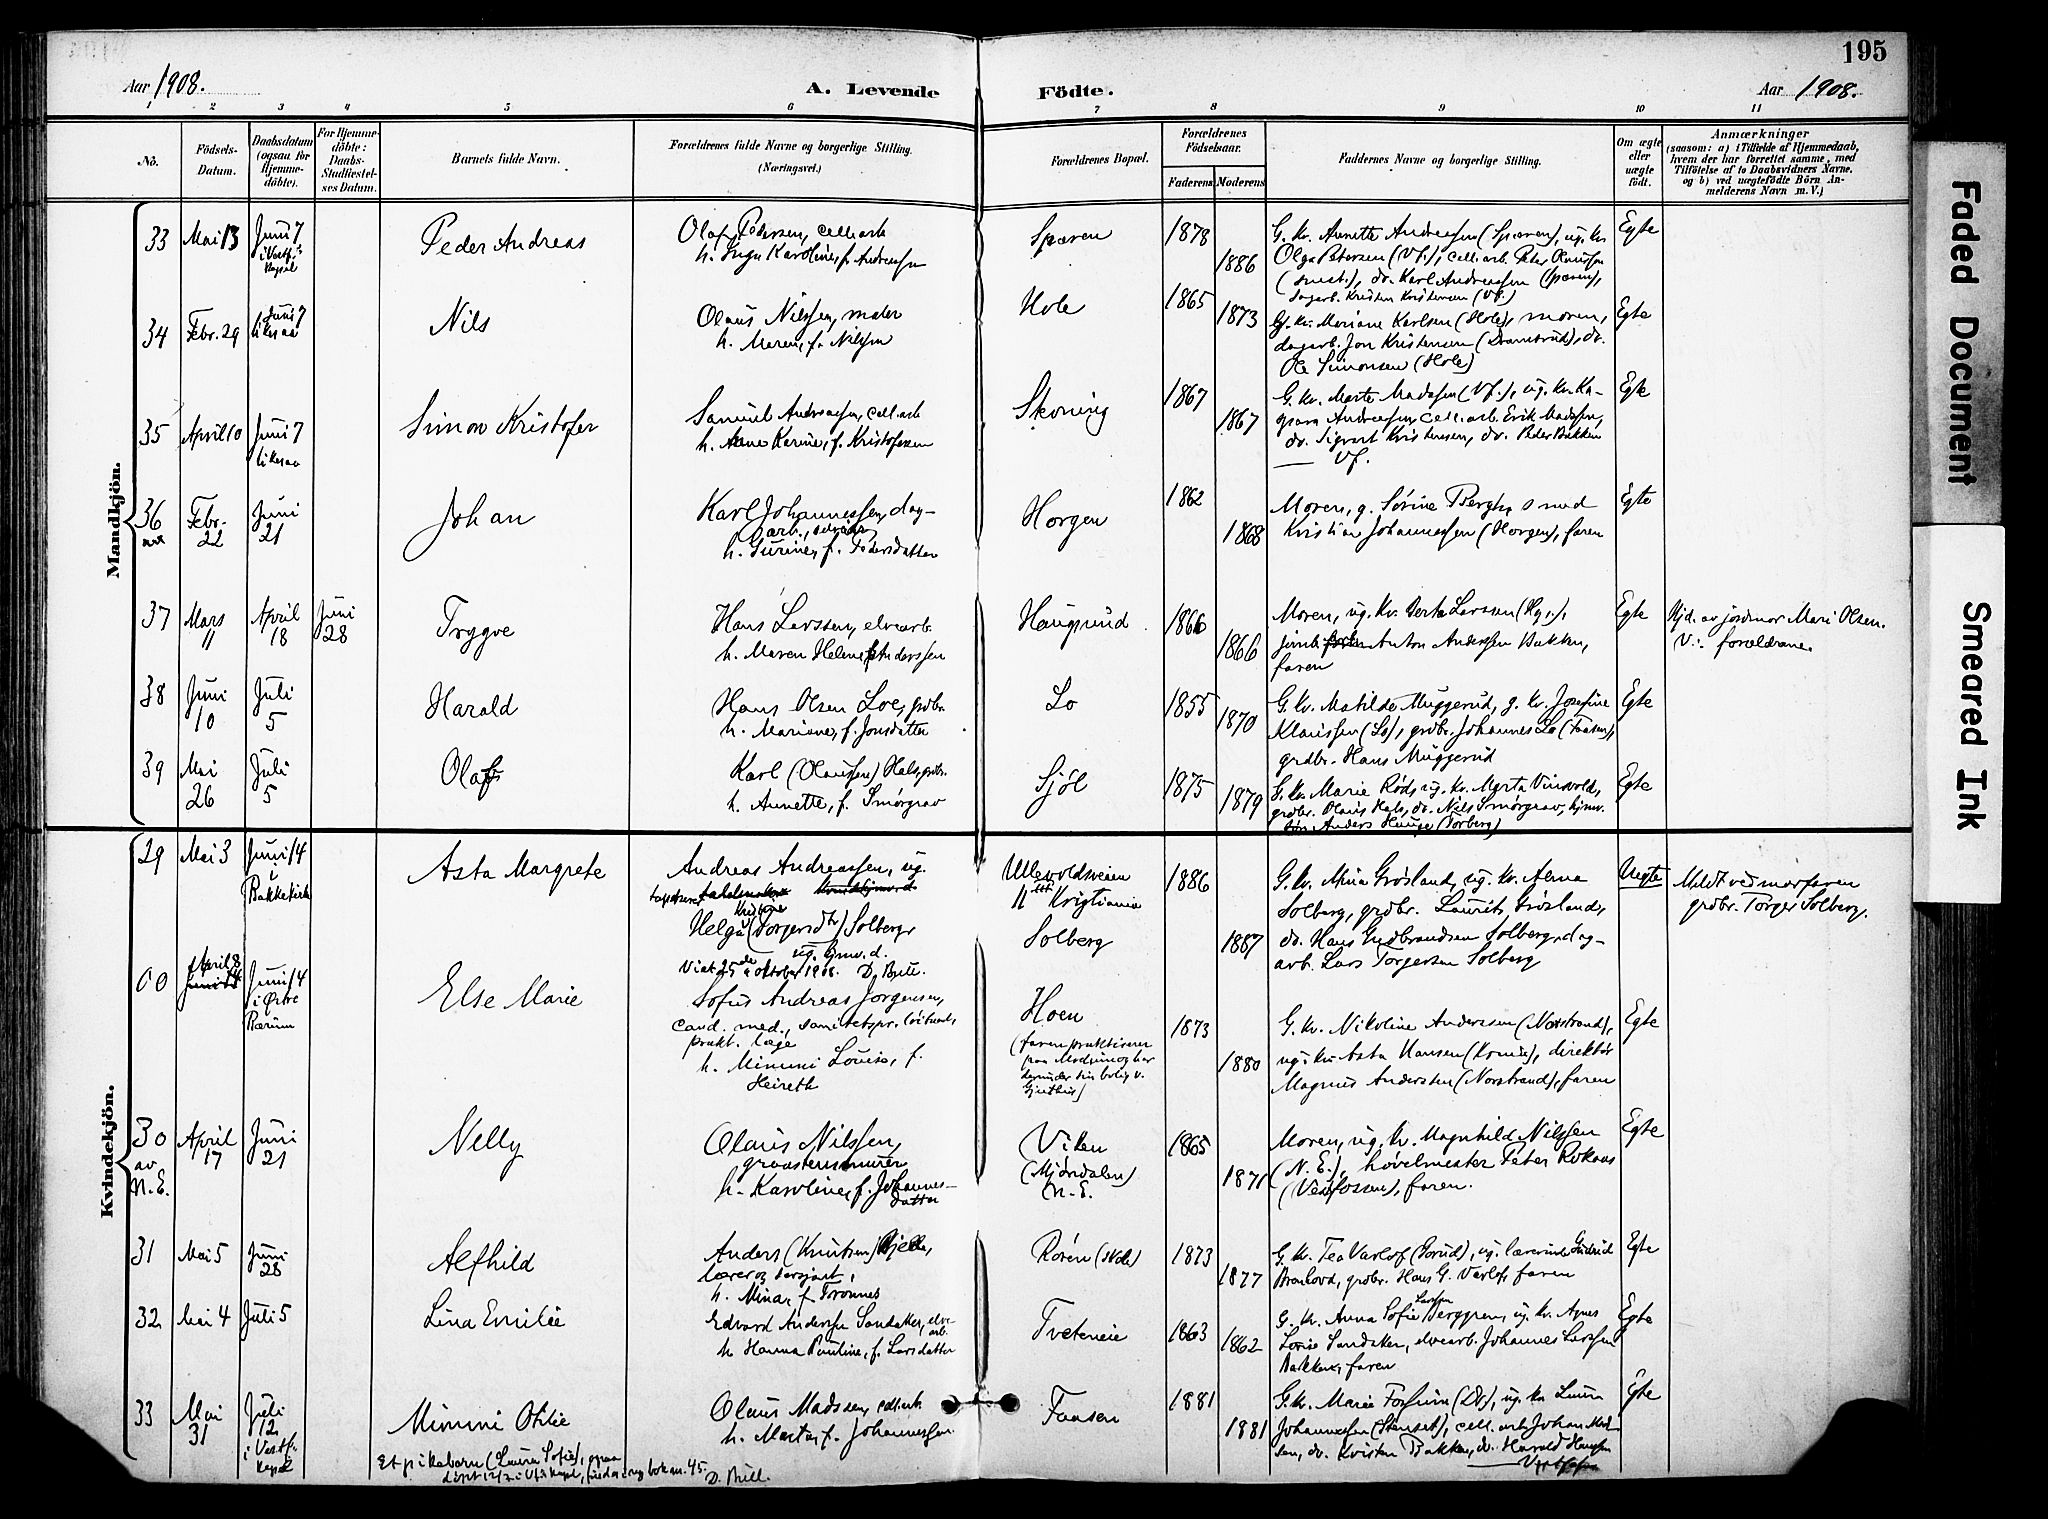 195
Aar 1908.
A. Levende Födte.
Aar 1908.
1 2 3 4 5 6 7 8 9 10 11
No.
Födsels-Datum.
Daabsdatum (ogsaa for Hjemme-döbte).
For Hjemme-döbte: Daabs-Stadfæstel-ses Datum.
Barnets fulde Navn.
Forældrenes fulde Navne og borgerlige Stilling.
(Næringsvei.)
Forældrenes Bopæl.
Forældrenes Födselsaar.
Faderens Moderens
Faddernes Navne og borgerlige Stilling.
Om ægte eller uægte födt.
Anmærkninger
(saasom: a) i Tilfælde af Hjemmedaab, hvem der har forrettet samme, med Tilföielse af to Daabsvidners Navne, og b) ved uægtefödte Börn An-melderens Navn m. V.)
Mandkjön.
33 Mai 13 Juni 7 i Vestf. kapel
Peder Andreas
Olaf Pedersen, cellarb
h. Inga Karoline, f. Andreassen
Spæren
1878 1886
G. kv. Annette Andreassen (Spæren), ug. kv.
Olga Petersen (Vf.), cell.arb. Peter
dv. Karl Andreassen (Spæren),
dagarb. Kristen Kristensen (Vf.)
Egte
34 Febr. 29 Juni 7 likesaa
Nils
Olaus Nilssen, maler
h. Maren, f. Nilssen
Hole
1865 1873
G. kv. Mariane Karlsen (Hole), moren,
dagarb. Jon Kristensen (Dramsrud), dv.
Ole Simonsen (Hole)
Egte
35 April 10 Juni 7 likesaa
Simon Kristofer
Samuel Andreassen, cell.arb
h. Anne Karine, f. Kristofersen
Skoning
1867 1867
G. kv. Marte Madssen (Vf.), ug. kv. Ka-
Andreassen, cell.arb. Erik Madssen,
dv. Sigvart Kristensen, dv. Peder Bakken
Vf.
Egte
36 Febr. 22 Juni 21
Johan
Karl Johannessen, dag-
arb.,
h. Gurine, f. Pedersdatter
Horgen
1862 1868
Moren, g. Sørine Bergh, smed
Kristian Johannessen (Horgen), faren
Egte
37 Mars 11 April 18 Juni 28
Trygve
Hans Larssen, elvearb.
h. Maren Helene f. Anderssen
Haugrund
1866 1866
Moren, ug. kv. Berta Larssen (Hg.),
Anton Anderssen Bakken,
faren
Egte
Hjd. av jordmor Mari Olsen.
V.: forældrene.
38 Juni 10 Juli 5
Harald
Hans Olsen Loe, grdbr.
h. Mariane, f. Jonsdatter
Lo
1855 1870
G. kv. Matilde Muggerud, g. kv. Josefine
Klausen (Lo), grdbr. Johannes Lo (Faasen),
grdbr. Hans Muggerud
Egte
39 Mai 26 Juli 5
Olaf
Karl (Olaussen) Hals, grdbr.
h. Annette, f. Smørgrav
Sjøl
1875 1879
G. kv. Marie Rød, ug. kv. Marta Vinsvold,
grdbr. Olaus Hals, dv. Nils Smørgrav, hjmv.
Anders Hauge (Torberg)
Egte
Kvindekjön.
29 Mai 3 Juni 14 i Bakke kirke
Asta Margrete
Andreas Andreassen, ug.
Helga Kristine (Torgersdtr) Solberg,
ug. hjmv. d.
Viet 25de oktober 1908. D. Bull.
Ullevoldsveien 11 Kristiania
Solberg
1886 1887
G. kv. Mina Grøsland, ug. kv. Anna
Solberg, grdbr. Laurits Grøsland,
dv. Hans Gudbrandsen Solberg, dag-
arb. Lars Torgersen Solberg
Uegte
Meldt ved morfaren
grdbr. Torger Solberg.
00 April 8 Juni 14 i Østre Bærum
Else Marie
Sofus Andreas Jørgensen,
cand. med.,
prakt. læge
h. Mimmi Louise, f.
Heireth
Hoen
(faren praktiserer
paa Modum og har
bolig v.
Gjethus)
1873 1880
G. kv. Nikoline Anderssen (Norstrand),
ug. kv. Asta Hansen, direktør
Magnus Anderssen (Norstrand), faren
Egte
30 av N.E. April 17 Juni 21
Nelly
Olaus Nilssen,
graastensmurer
h. Karoline, f. Johannes-
datter
Viken
(Mjøndalen)
(N.E.
1865 1871
Moren, ug. kv. Magnhild Nilssen
(N.E.), høvelmester Peter Rokaas
(Vestfossen), faren.
Egte
31 Mai 5 Juni 28
Alfhild
Anders (Knutsen) Bjelle,
lærer og sersjant,
h. Mina, f. Toronnes
Rorén (Hole)
1873 1877
G. kv. Tea Varlo (Borud), ug. lærerinde Gudrid
grdbr. Hans G. Varlo, faren
Egte
32 Mai 4 Juli 5
Lina Emilie
Edvard Anderssen Sandaker, elve-
arb.
h. Hanna Pauline, f. Larsdatter
Tveteneie
1863 1862
G. kv. Anna Sofie Larssen Berggren, ug. kv. Agnes
Lovise Sandaker, elvearb. Johannes Larssen
Bakken, faren
Egte
33 Mai 31 Juli 12 i Vestf. kapel
Mimmi Otilie
Olaus Madssen, cell.arb
h. Marta, f. Johannessen
Faasen
1881 1881
G. kv. Marie Forsum, ug. kv. Laura
Johannessen (Stenset), cell.arb. Johan Mad-
sen, dv. Kristen Bakken, dv. Harald Hanssen
Egte
Et pikebarn (Laura Sofie), ogsaa
døpt 12/7 i Vf. kapel, findes i ny bok nr. 45.
D. Bull.
Faded Document
Smeared Ink